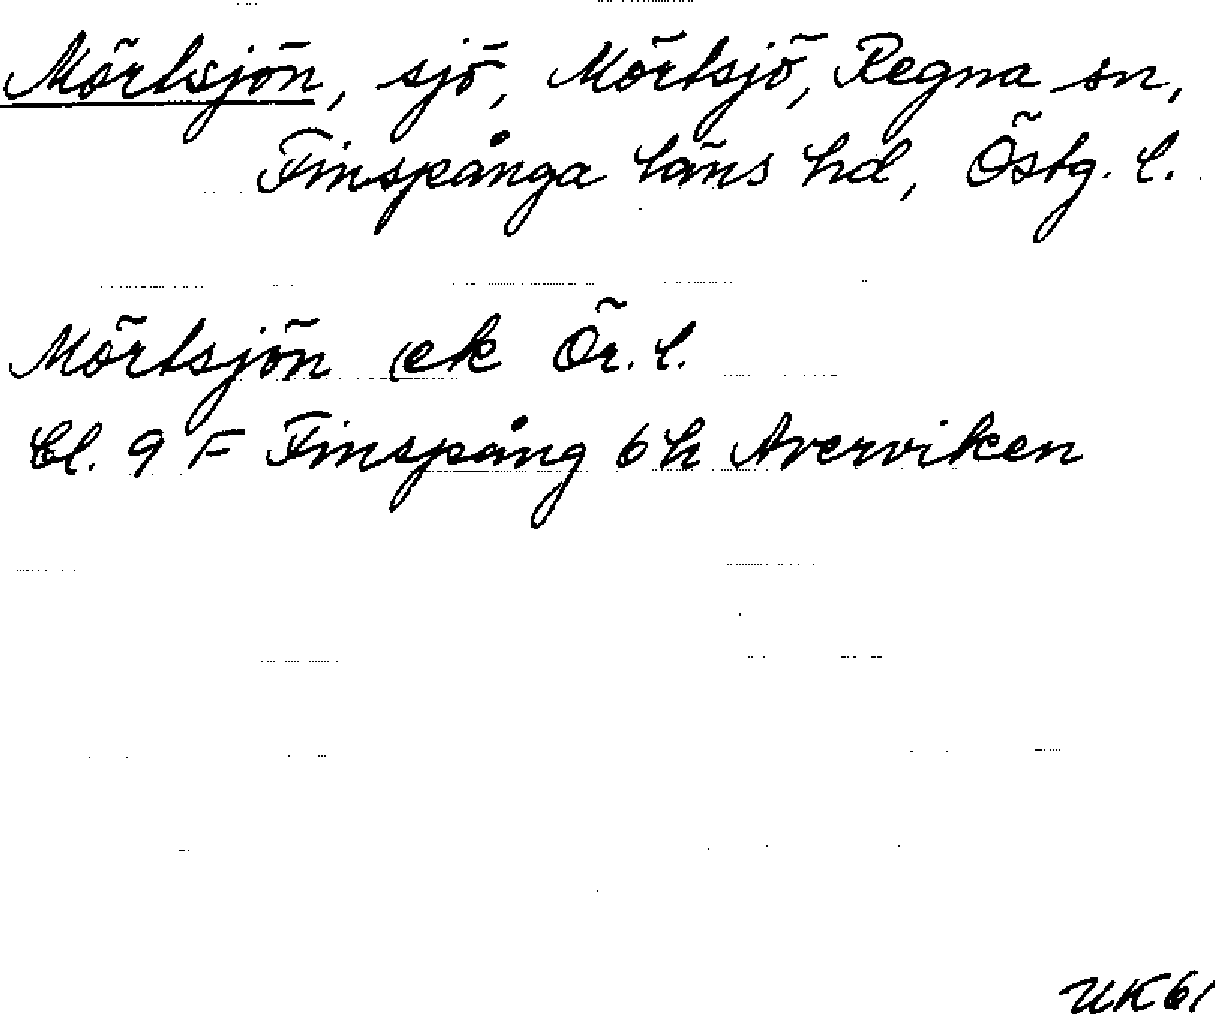 Mörtsjön, sjö, Mörtsjö, Regna sn,
Finspånga läns hd, Östg. l.
Mörtsjön ek Ör. l.
Bl. 9 F Finspång 6 h Averviken
UK 61